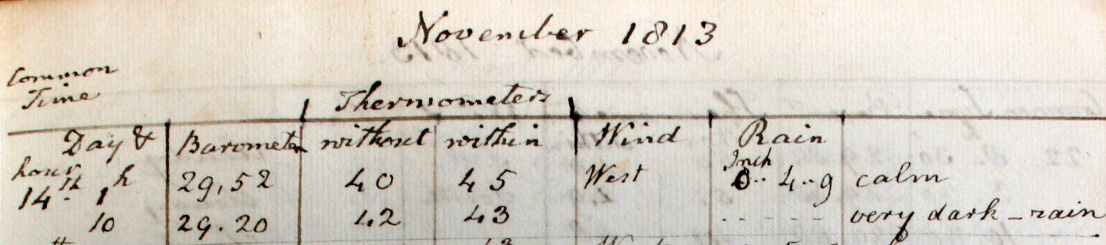 November 1813
Common
Time
Thermometers
Day & Barometer without within Wind Rain
hour Inch
14th 1h 29,52 40 45 West 0.. 4..9 calm
10 29.20 42 43 - - - - - - very dark - rain